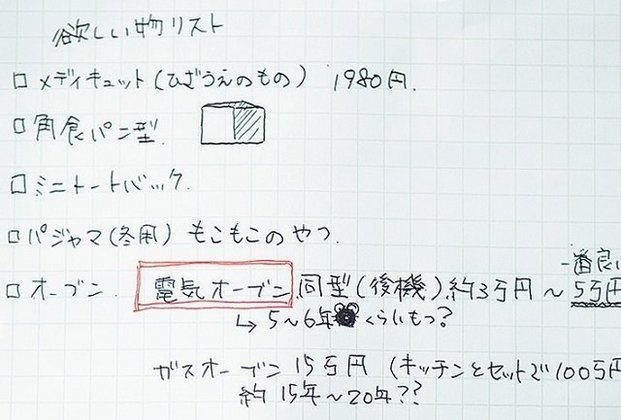 欲しい物リスト
□ メディキュット(ひざうえのもの) 1980円.
□ 角食パン型.
□ ミニトートバック.
□ パジャマ(冬用) もこもこのやつ.
一番良い
□ オーブン. 電気オーブン 同型(後機).約3万円～5万円
↳ 5～6年くらいもつ?
ガスオーブン 15万円 (キッチンとセットで100万円
約 15年～20年??